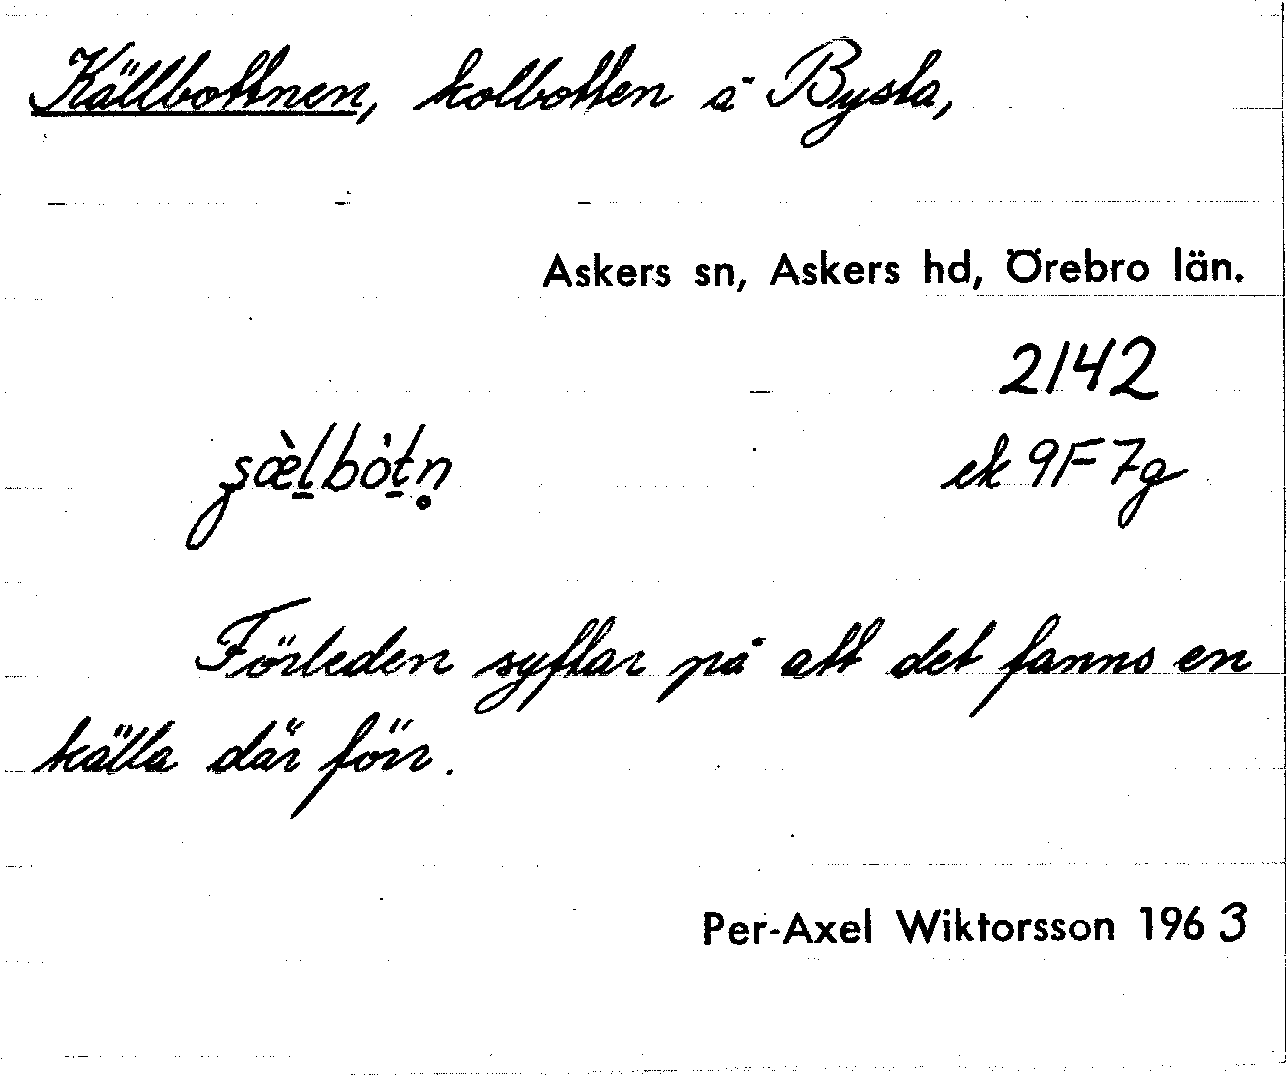 Källbottnen, kolbotten å Bysta,
Askers sn, Askers hd, Örebro län.
2142
ek 9F7g
Förleden syftar på att det fanns en
källa där förr.
Per-Axel Wiktorsson 1963